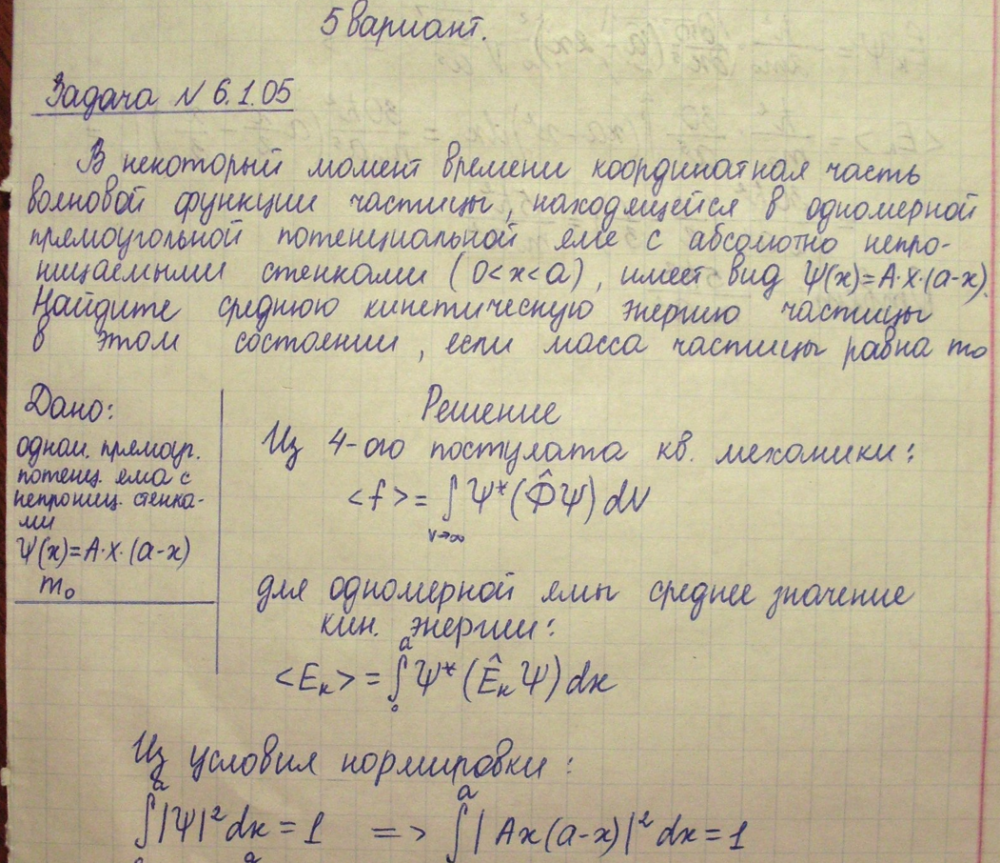 5 вариант.
Задача N 6.1.05
В некоторый момент времени координатная часть
волновой функции частицы, находящейся в одномерной
прямоугольной потенциальной яме с абсолютно непро-
ницаемыми стенками (0<x<a), имеет вид Ψ(x)=A·x·(a-x).
Найдите среднюю кинетическую энергию частицы
в этом состоянии, если масса частицы равна m₀
Дано:
одном. прямоуг.
потенц. яма с
непрониц. стенка-
ми
Ψ(x)=A·x·(a-x)
m₀
Решение
Из 4-ого постулата кв. механики:
<f> = ∫ Ψ*(Φ̂Ψ) dV
V→∞
для одномерной ямы среднее значение
кин. энергии:
<Eₖ> = ∫₀ᵃ Ψ*(ÊₖΨ) dx
Из условия нормировки:
∫ᵃ |Ψ|² dx = 1 => ∫ᵃ | Ax(a-x)|² dx = 1